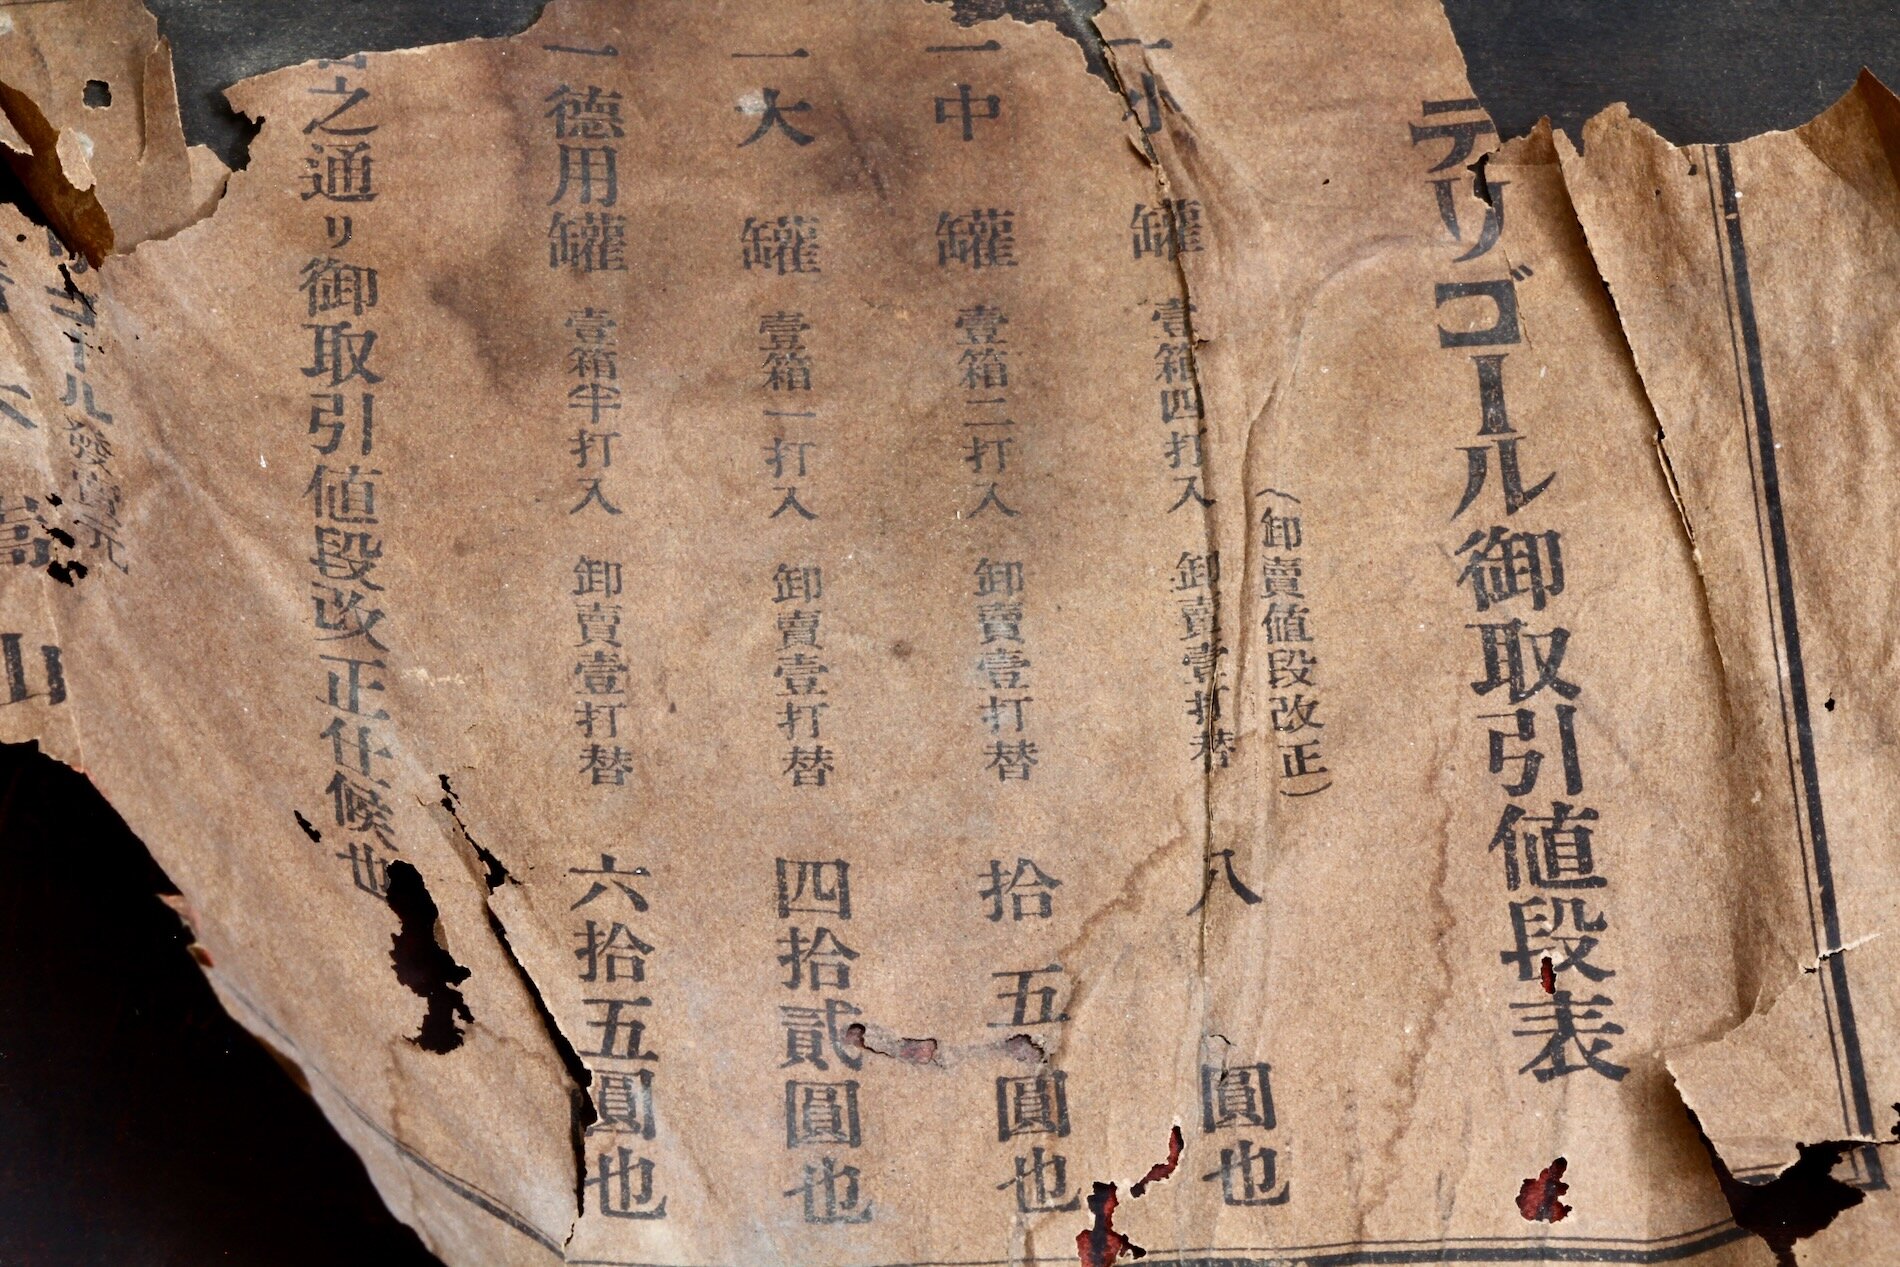 テリゴール御取引値段表
（卸賣値段改正）
一小罐 壹箱四打入 卸賣壹打替 八圓也
一中罐 壹箱二打入 卸賣壹打替 拾五圓也
一大罐 壹箱一打入 卸賣壹打替 四拾貳圓也
一德用罐 壹箱半打入 卸賣壹打替 六拾五圓也
之通リ御取引値段改正仕候也
ゴール發賣元
山